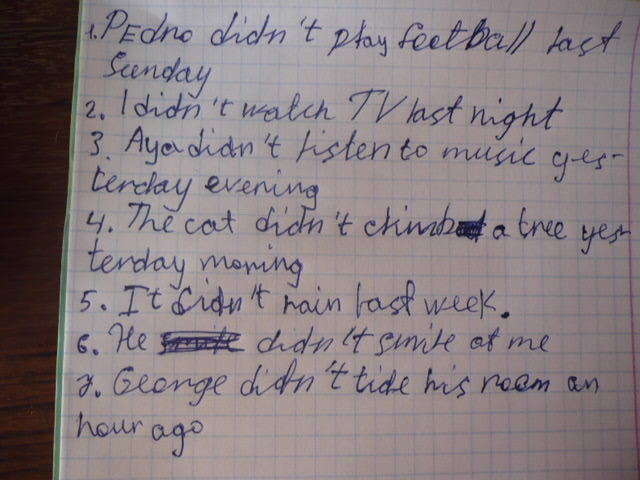 1. PEdro didn't play football last
Sunday
2. I didn't watch TV last night
3. Aya didn't listen to music yes-
terday evening
4. The cat didn't climb a tree yes-
terday morning
5. It didn't rain last week.
6. He didn't smile at me
7. George didn't tide his room an
hour ago